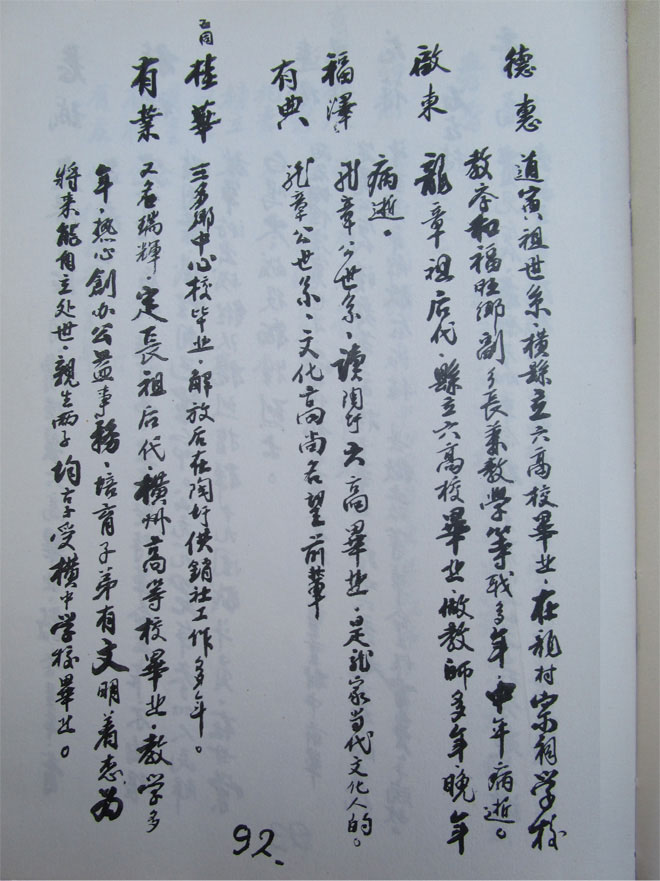 德惠 道寅祖世系、橫縣立六高校畢业、在龍村宗祠学校
教序和福旺鄉副乡長兼教學等职多年、中年病逝。
啟東 龍章祖后代、縣立六高校畢业、做教師多年晚年
病逝。
福澤 龙章公世系、讀陶圩六高畢业、是龙家当代文化人的。
有典 龙章公世系、文化高尚名望前輩
桂華 三多鄉中心校毕业、解放后在陶圩供銷社工作多年。
有業 又名瑞輝、定長祖后代、橫州高等校畢业、教学多
年、热心創办公益事務、培育子弟有文明着志为
將来能自立处世、親生两子均享受橫中学校畢业。
92